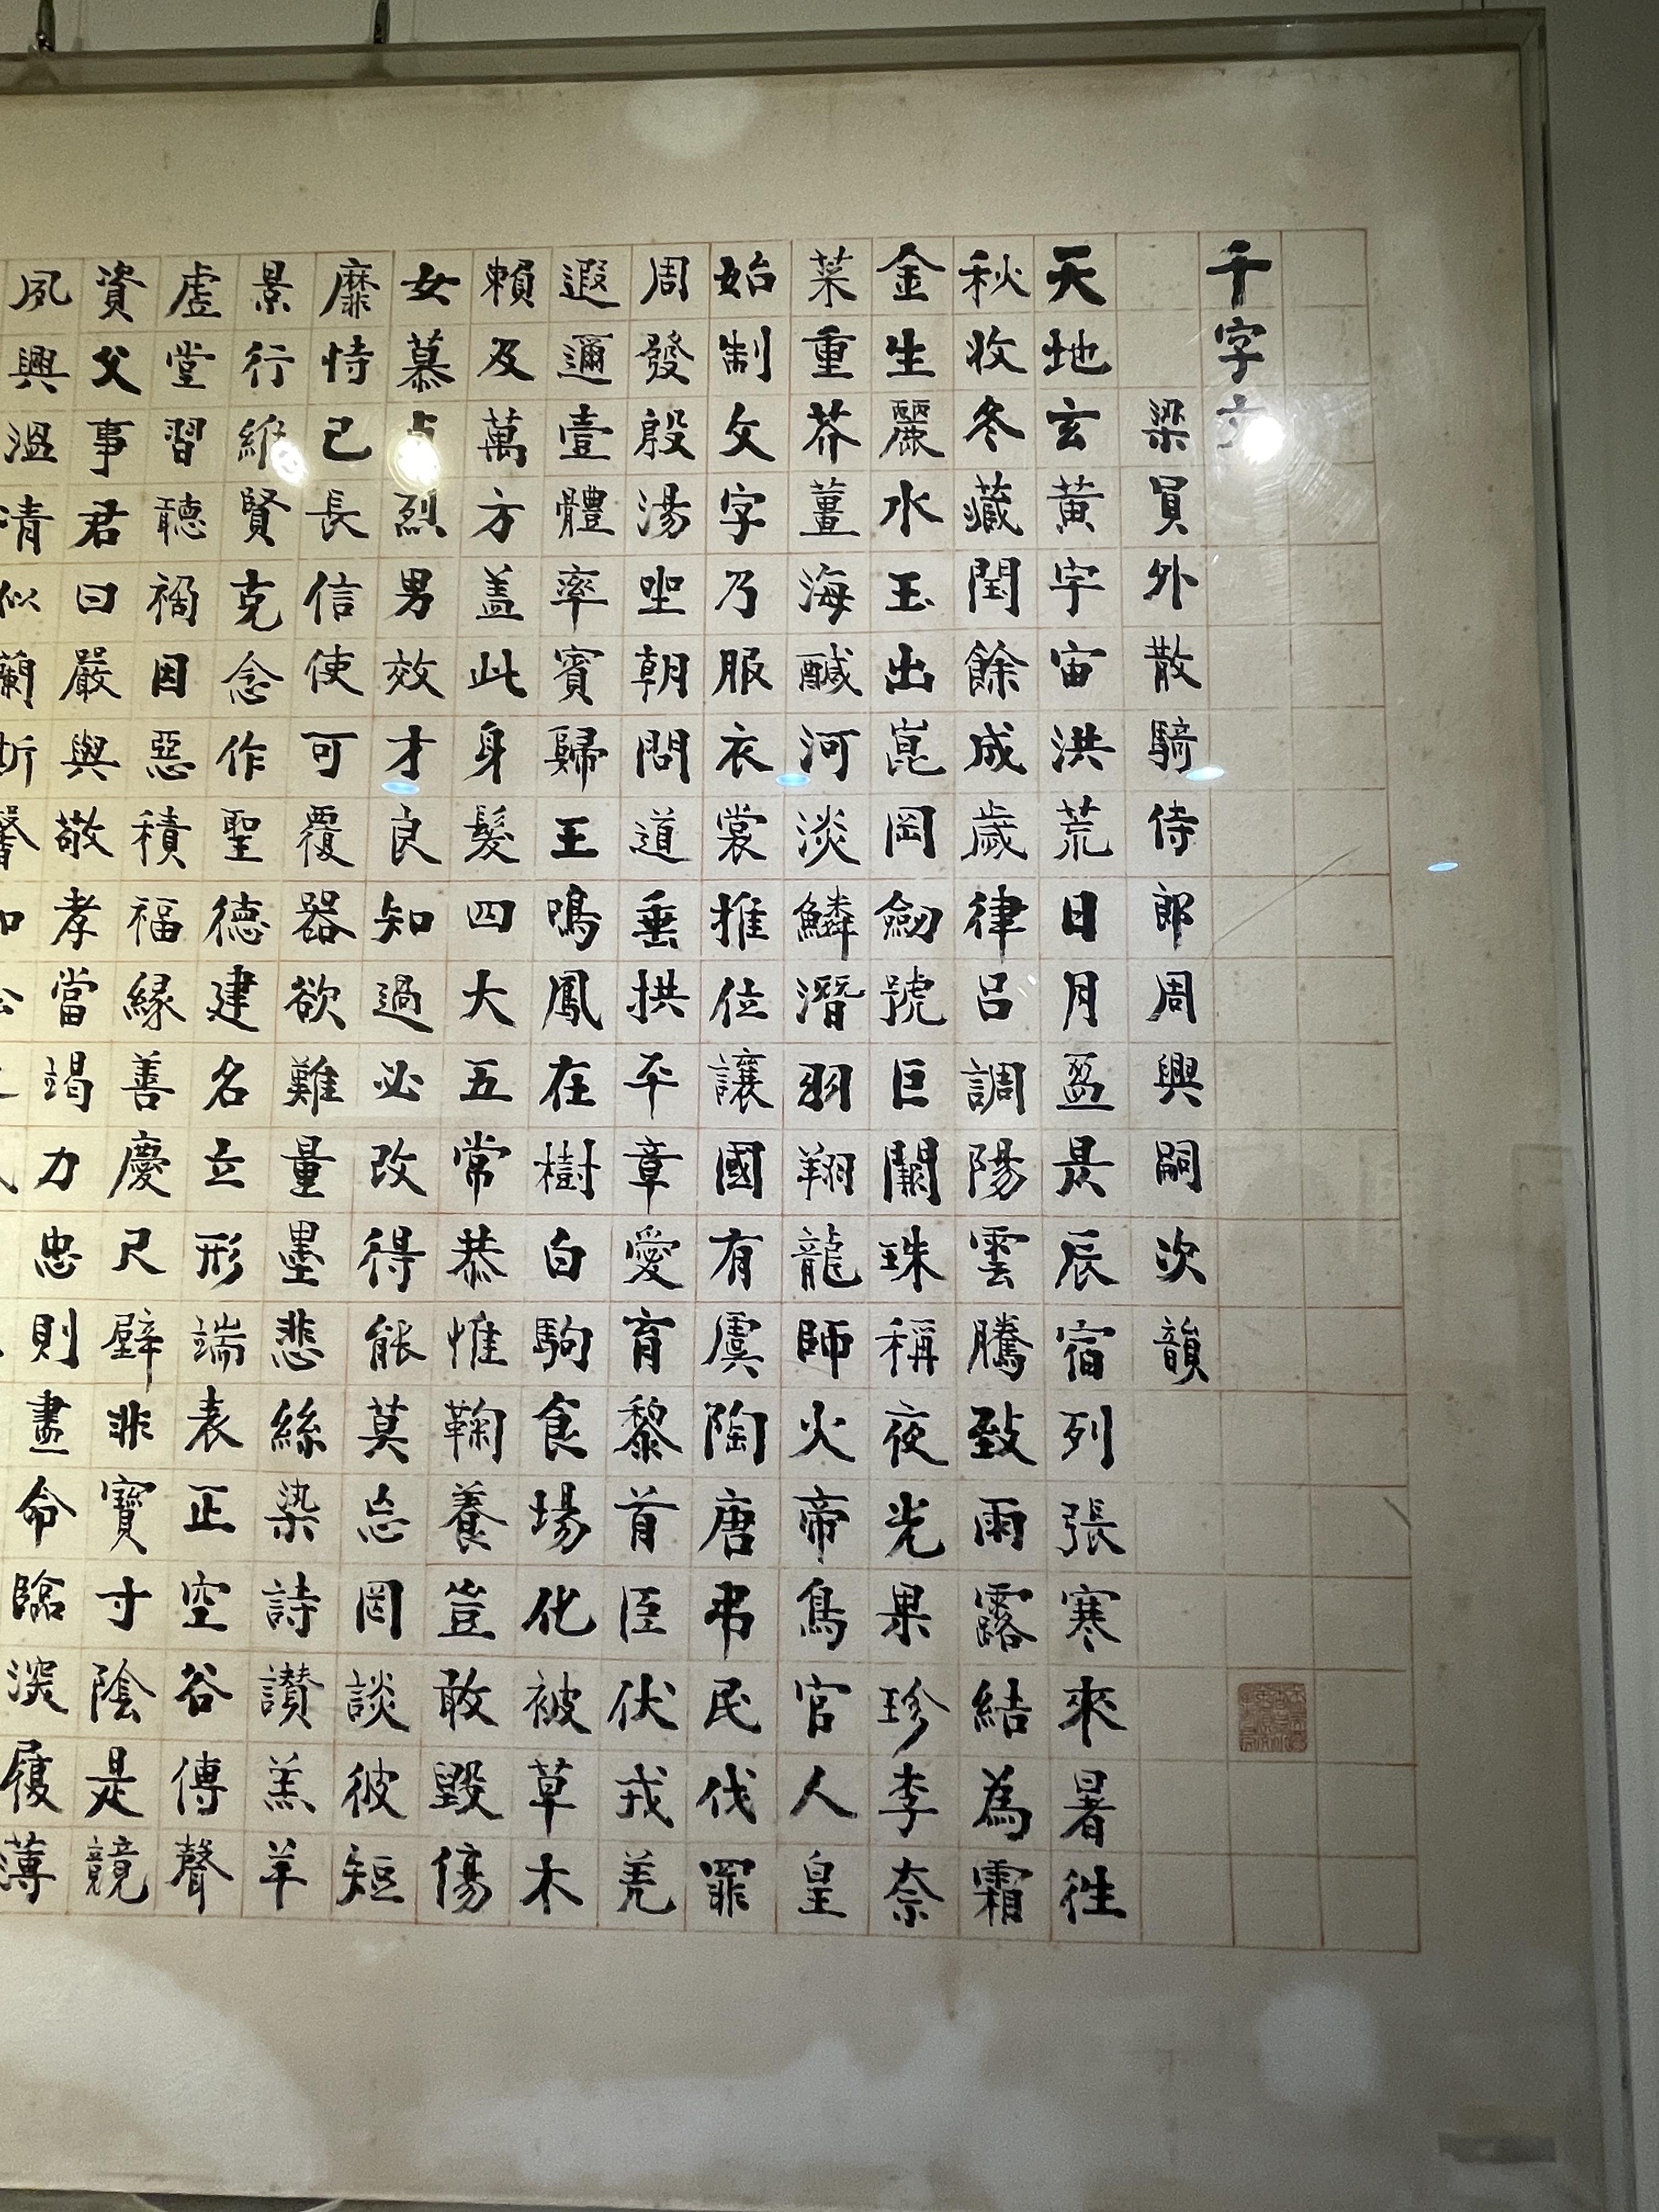 千字文
梁員外散騎侍郎周興嗣次韻
天地玄黃宇宙洪荒日月盈昃辰宿列張寒來暑徃
秋收冬藏閏餘成歲律呂調陽雲騰致雨露結為霜
金生麗水玉出崑岡劒號巨闕珠稱夜光果珍李柰
菜重芥薑海醎河淡鱗潛羽翔龍師火帝鳥官人皇
始制文字乃服衣裳推位讓國有虞陶唐弔民伐罪
周發殷湯坐朝問道垂拱平章愛育黎首臣伏戎羌
遐邇壹體率賓歸王鳴鳳在樹白駒食場化被草木
賴及萬方盖此身髮四大五常恭惟鞠養豈敢毀傷
女慕貞烈男效才良知過必改得能莫忘罔談彼短
靡恃己長信使可覆器欲難量墨悲絲染詩讃羔羊
景行維賢克念作聖德建名立形端表正空谷傳聲
虛堂習聽禍因惡積福緣善慶尺璧非寶寸陰是競
資父事君曰嚴與敬孝當竭力忠則盡命臨深履薄
夙興溫清似蘭斯馨如松